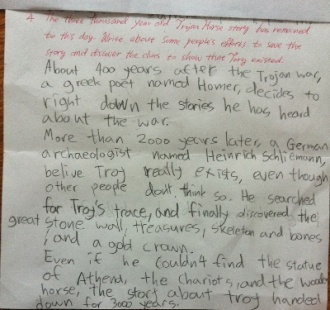 4. The three thousand year old Trojan Horse story has remained
to this day. Write about some people's efforts to save the
story and discover the clues to show that Troy existed.
About 400 years after the Trojan war,
a greek poet named Homer, decides to
right down the stories he has heard
about the war.
More than 2000 years later, a German
archaeologist named Heinrich Schliemann,
belive Troy really exists, even though
other people don't think so. He searched
for Troy's trace, and finally discovered the
great stone wall, treasures, skeleton and bones
, and a gold crown.
Even if he couldn't find the statue
of Athena, the chariots, and the wooden
horse, the story about troy handed
down for 3000 years.